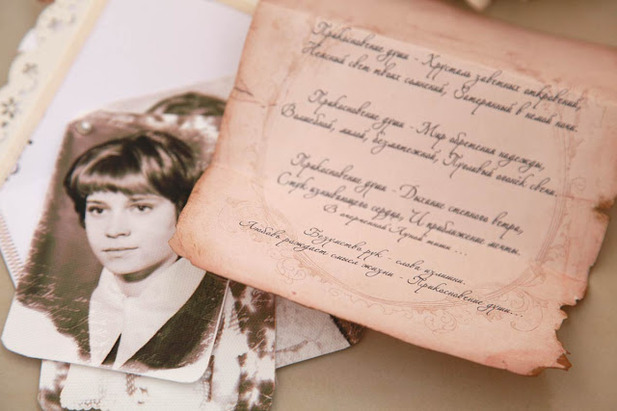 Прикосновение души - Хрусталь заветных откровений,
Неясный свет твоих сомнений, Затерянный в немой ночи.
Прикосновение души - Мир обретения надежды,
Волшебный, милый, безмятежной, Прямый огонёк свечи.
Прикосновение души - Дыхание степного ветра,
Стук изнывающего сердца, И приближение мечты.
В озаренной Лунной тиши ...
Безумство рук - слова излишни.
Любовь рождает смысл жизни - Прикосновение души...